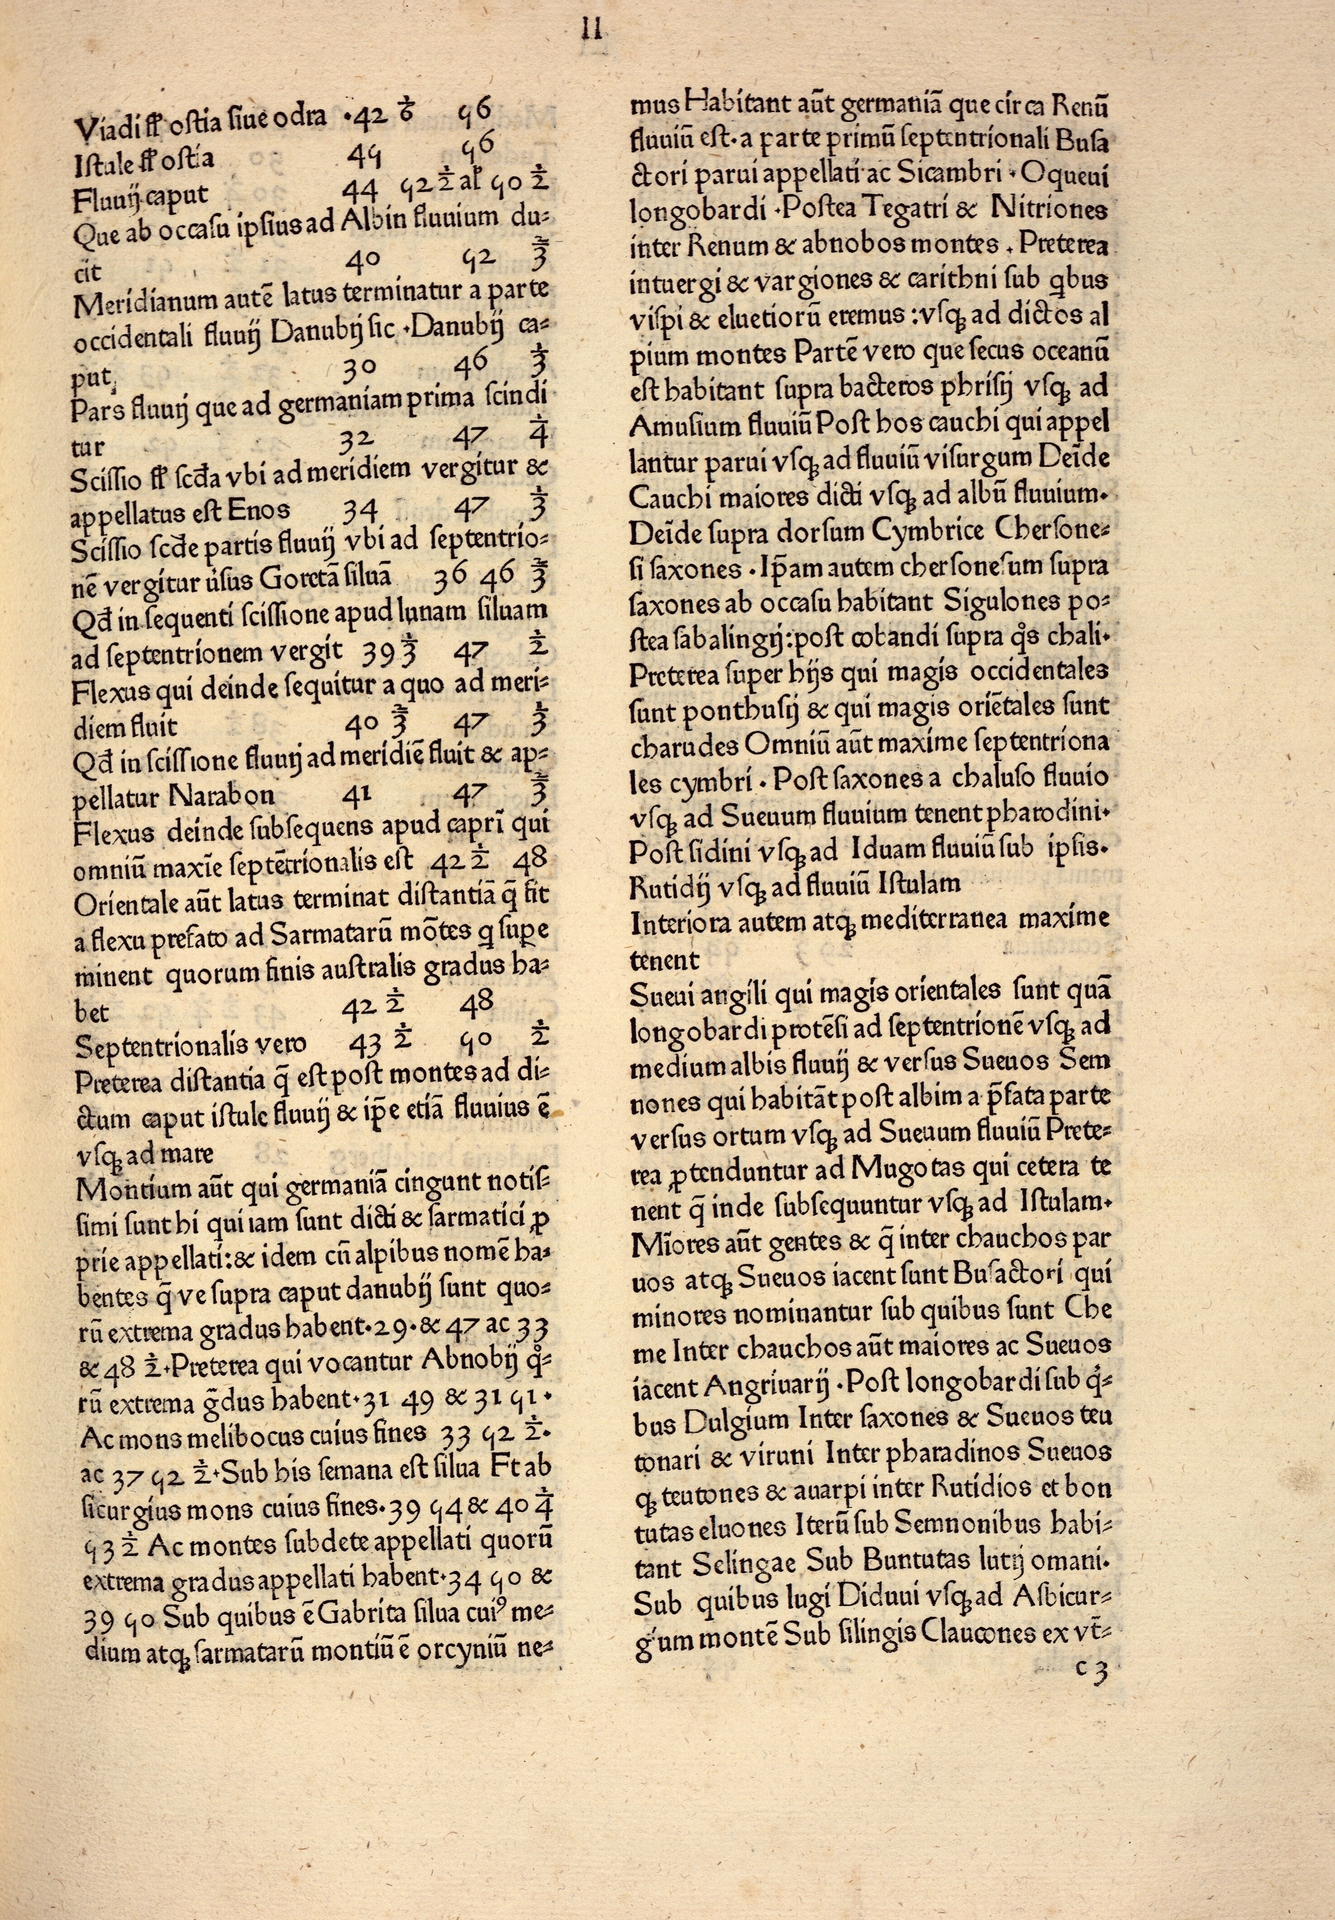 II
Viadi fl̄ ostia siue odra ·42 ⅙ 56
Istule fl̄ ostia 45 56
Fluuij caput 44 52 ½ al̄ 50 ½
Que ab occasu ipsius ad Albin fluuium du⸗
cit 40 52 ⅔
Meridianum autē latus terminatur a parte
occidentali fluuij Danubij sic ·Danubij ca⸗
put, 30 46 ⅓
Pars fluuij que ad germaniam prima scindi
tur 32 47 ¼
Scissio fl̄ scd̄a vbi ad meridiem vergitur &
appellatus est Enos 34 47 ⅓
Scissio scd̄e partis fluuij vbi ad septentrio⸗
nē vergitur u̇sus Goretā siluā 36 46 ⅔
Qd̄ in sequenti scissione apud lunam siluam
ad septentrionem vergit 39 ⅓ 47 ½
Flexus qui deinde sequitur a quo ad meri⸗
diem fluit 40 ⅔ 47 ⅓
Qd̄ in scissione fluuij ad meridiē fluit & ap⸗
pellatur Narabon 41 47 ⅔
Flexus deinde subsequens apud caprī qui
omniū maxīe septētrionalis est 42 ½ 48
Orientale aūt latus terminat distantiā q̄ fit
a flexu prefato ad Sarmatarū mōtes q supe
minent quorum finis australis gradus ha⸗
bet 42 ½ 48
Septentrionalis vero 43 ½ 50 ½
Preterea distantia q̄ est post montes ad di⸗
ctum caput istule fluuij & ip̄e etiā fluuius ē
vsqꝫ ad mare
Montium aūt qui germaniā cingunt notis⸗
simi sunt hi qui iam sunt dicti & sarmatici ꝓ
prie appellati:& idem cū alpibus nomē ha⸗
bentes q̄ ve supra caput danubij sunt quo⸗
rū extrema gradus habent·29·& 47 ac 33
& 48 ½·Preterea qui vocantur Abnobij qͦ⸗
rū extrema ḡdus habent·31 49 & 31 51·
Ac mons melibocus cuius fines 33 52 ½·
ac 37 52 ½·Sub his semana est silua Et ab
sicurgius mons cuius fines·39 54 & 40 ¼
53 ½ Ac montes subdete appellati quorū
extrema gradus appellati habent·34 50 &
39 50 Sub quibus ē Gabrita silua cuiꝰ me⸗
dium atqꝫ sarmatarū montiū ē orcyniū ne⸗
mus Habitant aūt germaniā que circa Renū
fluuiū est·a parte primū septentrionali Busa
ctori parui appellati ac Sicambri·Oqueui
longobardi ·Postea Tegatri & Nitriones
inter Renum & abnobos montes . Preterea
intuergi & vargiones & carithni sub qbus
vispi & eluetiorū eremus :vsqꝫ ad dictos al
pium montes Partē vero que secus oceanū
est habitant supra bacteros phrisij vsqꝫ ad
Amusium fluuiū Post hos cauchi qui appel
lantur parui vsqꝫ ad fluuiū visurgum Deīde
Cauchi maiores dicti vsqꝫ ad albū fluuium·
Deīde supra dorsum Cymbrice Chersone⸗
si saxones ·Ip̄am autem chersonesum supra
saxones ab occasu habitant Sigulones po⸗
stea sabalingij:post cobandi supra qͦs chali·
Preterea super hijs qui magis occidentales
sunt ponthusij & qui magis oriētales sunt
charudes Omniū aūt maxime septentriona
les cymbri · Post saxones a chaluso fluuio
vsqꝫ ad Sueuum fluuium tenent pharodini·
Post sidini vsqꝫ ad Iduam fluuiū sub ipsis·
Rutidij vsqꝫ ad fluuiū Istulam
Interiora autem atqꝫ mediterranea maxime
tenent
Sueui angili qui magis orientales sunt quā
longobardi protēsi ad septentrionē vsqꝫ ad
medium albis fluuij & versus Sueuos Sem
nones qui habitāt post albim a p̄fata parte
versus ortum vsqꝫ ad Sueuum fluuiū Prete⸗
rea ꝓtenduntur ad Mugotas qui cetera te
nent q̄ inde subsequuntur vsqꝫ ad Istulam·
Mīores aūt gentes & q̄ inter chauchos par
uos atqꝫ Sueuos iacent sunt Busactori qui
minores nominantur sub quibus sunt Che
me Inter chauchos aūt maiores ac Sueuos
iacent Angriuarij ·Post longobardi sub qͥ⸗
bus Dulgium Inter saxones & Sueuos teu
tonari & viruni Inter pharadinos Sueuos
qꝫ teutones & auarpi inter Rutidios et bon
tutas eluones Iterū sub Semnonibus habi⸗
tant Selingae Sub Buntutas lutij omani·
Sub quibus lugi Diduui vsqꝫ ad Asbicur⸗
gium montē Sub silingis Claucones ex vt̄⸗
c 3